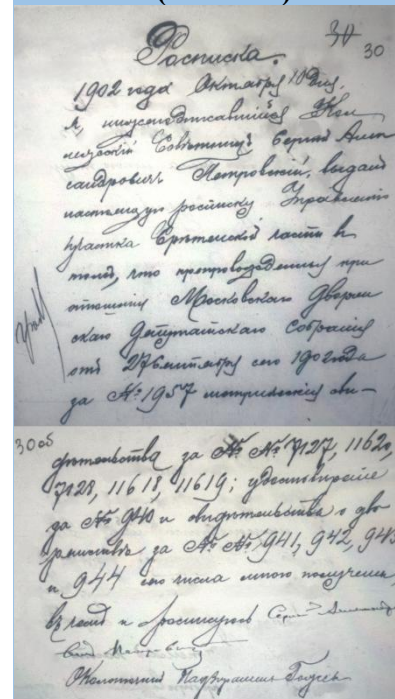 30 30
Расписка.
1902 года Октября 10 дня,
Я, нижеподписавшийся Кол
лежский Советник Сергей Алек
сандрович Петровский, выдал
настоящую росписку Управлению
участка Сретенской части в
том, что препровожденныя при
отношении Московскаго Дворян
скаго Депутатскаго Собрания
от 27 Сентября сего 1902 года
за № 1957 метрическия сви-
30 об
детельства за № № 7127, 11620,
7128, 11618, 11619; удостоверение
за № 940 и свидетельства о дво
рянстве за № № 941, 942, 943
и 944 сего числа мною получены,
в чем и росписуюсь Сергей
Околоточный Надзиратель